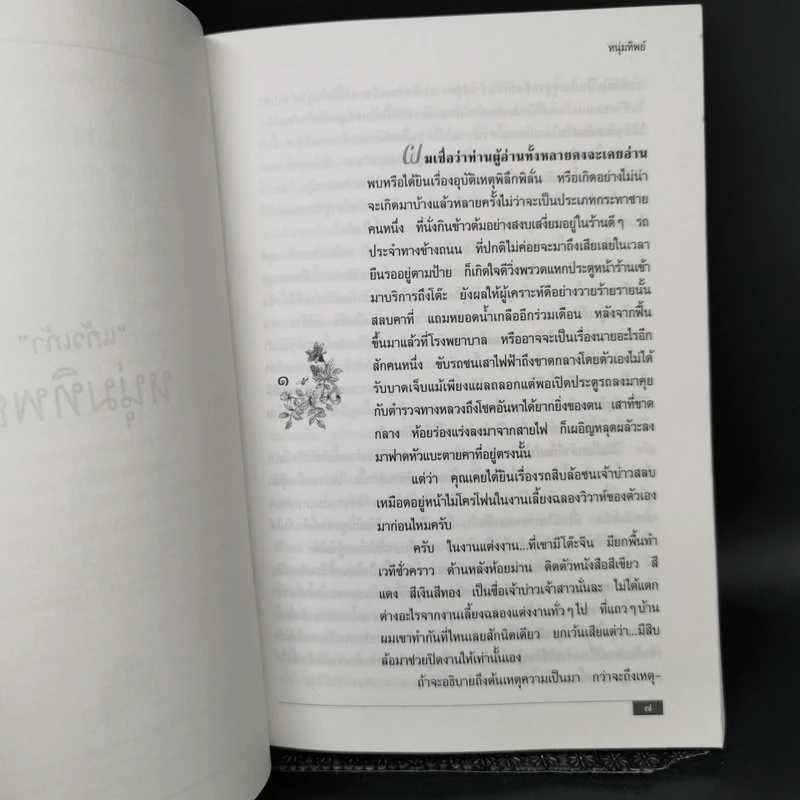 หนุ่มทิพย์
ผมเชื่อว่าท่านผู้อ่านทั้งหลายคงจะเคยอ่าน
พบหรือได้ยินเรื่องอุบัติเหตุพิลึกพิลั่น หรือเกิดอย่างไม่น่า
จะเกิดมาบ้างแล้วหลายครั้งไม่ว่าจะเป็นประเภทกระทาชาย
คนหนึ่ง ที่นั่งกินข้าวต้มอย่างสงบเสงี่ยมอยู่ในร้านดีๆ รถ
ประจำทางข้างถนน ที่ปกติไม่ค่อยจะมาถึงเสียเลยในเวลา
ยืนรออยู่ตามป้าย ก็เกิดใจดีวิ่งพรวดแหกประตูหน้าร้านเข้า
มาบริการถึงโต๊ะ ยังผลให้ผู้เคราะห์ดีอย่างวายร้ายรายนั้น
สลบคาที่ แถมหยอดน้ำเกลืออีกร่วมเดือน หลังจากฟื้น
ขึ้นมาแล้วที่โรงพยาบาล หรืออาจจะเป็นเรื่องนายอะไรอีก
สักคนหนึ่ง ขับรถชนเสาไฟฟ้าถึงขาดกลางโดยตัวเองไม่ได้
๑
รับบาดเจ็บแม้เพียงแผลถลอกแต่พอเปิดประตูรถลงมาคุย
กับตำรวจทางหลวงถึงโชคอันหาได้ยากยิ่งของตน เสาที่ขาด
กลาง ห้อยร่องแร่งลงมาจากสายไฟ ก็เผอิญหลุดผลัวะลง
มาฟาดหัวแบะตายคาที่อยู่ตรงนั้น
แต่ว่า คุณเคยได้ยินเรื่องรถสิบล้อชนเจ้าบ่าวสลบ
เหมือดอยู่หน้าไมโครโฟนในงานเลี้ยงฉลองวิวาห์ของตัวเอง
มาก่อนไหมครับ
ครับ ในงานแต่งงาน...ที่เขามีโต๊ะจีน มียกพื้นทำ
เวทีชั่วคราว ด้านหลังห้อยม่าน ติดตัวหนังสือสีเขียว สี
แดง สีเงินสีทอง เป็นชื่อเจ้าบ่าวเจ้าสาวนั่นละ ไม่ได้แตก
ต่างอะไรจากงานเลี้ยงฉลองแต่งงานทั่วๆไป ที่แถวๆบ้าน
ผมเขาทำกันที่ไหนเลยสักนิดเดียว ยกเว้นเสียแต่ว่า...มีสิบ
ล้อมาช่วยปิดงานให้เท่านั้นเอง
ถ้าจะอธิบายถึงต้นเหตุความเป็นมา กว่าจะถึงเหตุ-
๗